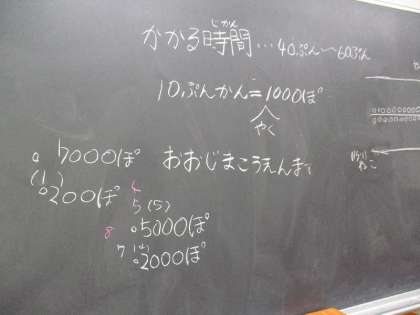 かかる時間…40ぷん〜60ぷん
じかん
10ぷんかん=1000ぽ
やく
7000ぽ おおじまこうえんまで
(1)
200ぽ
5(5)
8 5000ぽ
7
2000ぽ
ねこ